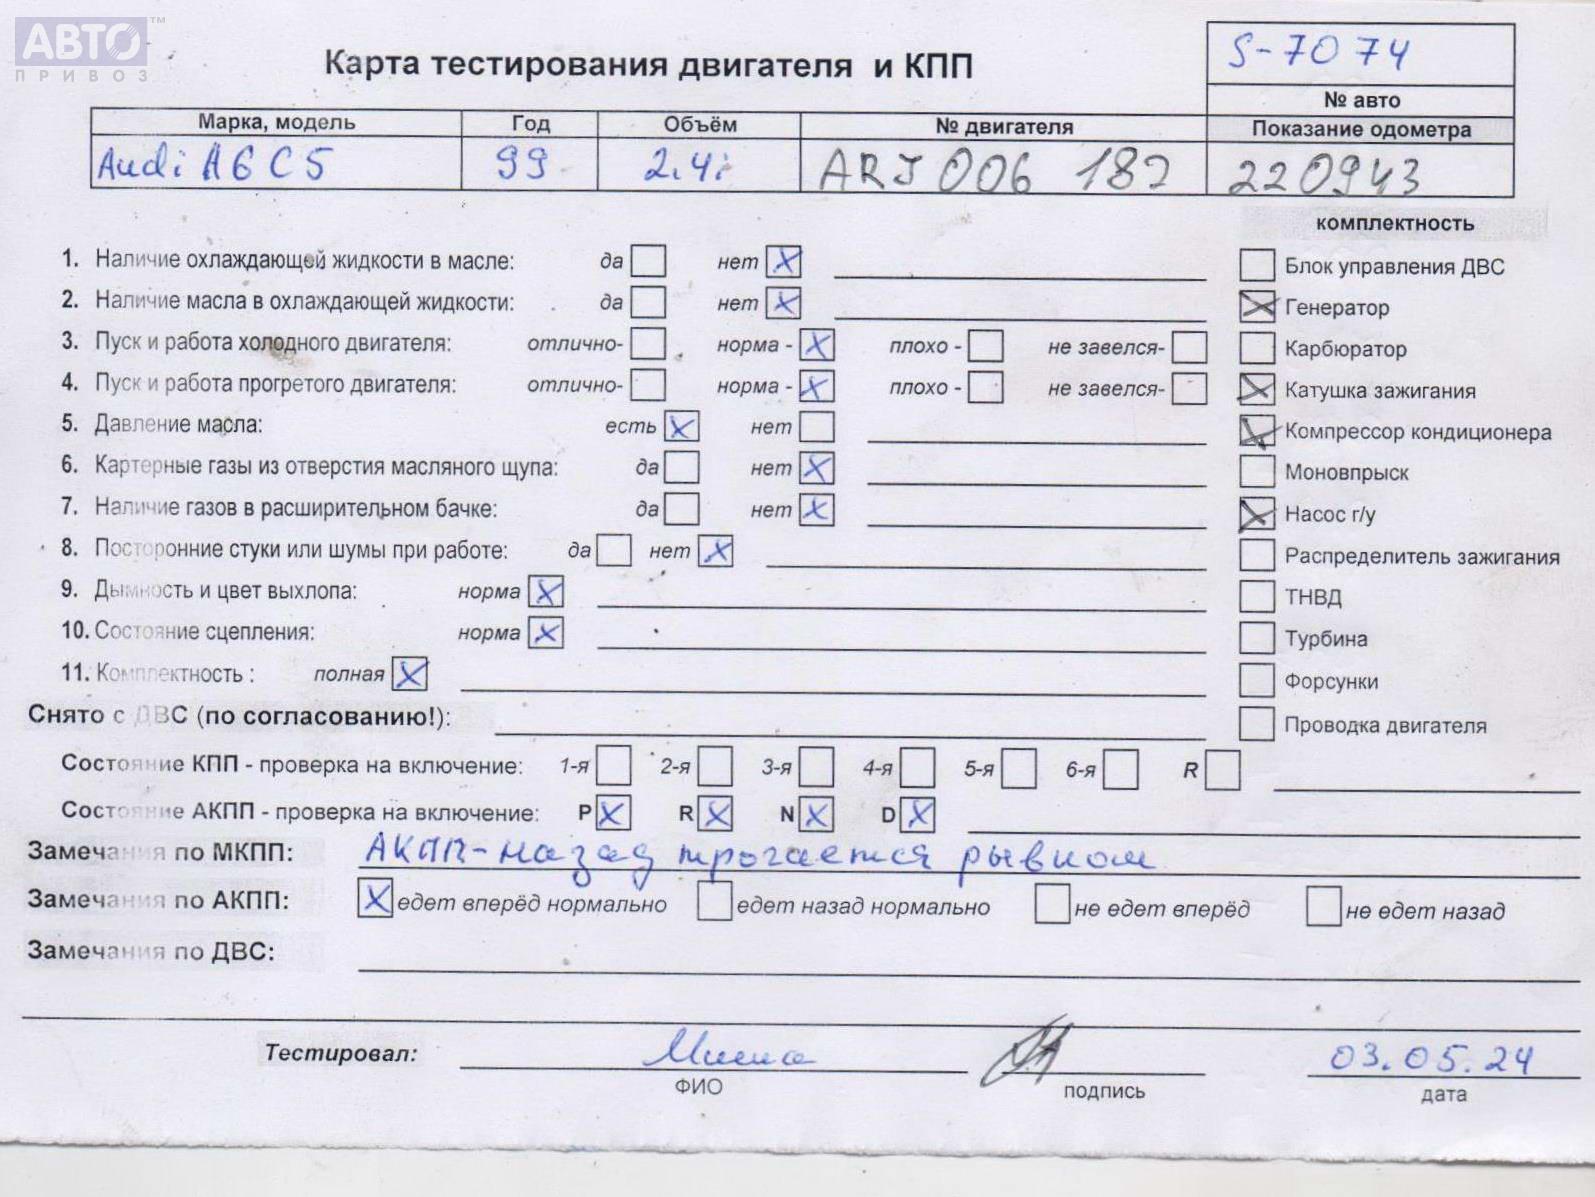 АВТО ™
ПРИВОЗ
Карта тестирования двигателя и КПП
S-7074
№ авто
Марка, модель Год Объём № двигателя Показание одометра
Audi A6 C5 99 2.4i ARJ 006 187 220943
комплектность
1. Наличие охлаждающей жидкости в масле: да нет X
Блок управления ДВС
2. Наличие масла в охлаждающей жидкости: да нет X
X Генератор
3. Пуск и работа холодного двигателя: отлично- норма - X плохо - не завелся-
Карбюратор
4. Пуск и работа прогретого двигателя: отлично- норма - X плохо - не завелся-
X Катушка зажигания
5. Давление масла: есть X нет
X Компрессор кондиционера
6. Картерные газы из отверстия масляного щупа: да нет X
Моновпрыск
7. Наличие газов в расширительном бачке: да нет X
X Насос г/у
8. Посторонние стуки или шумы при работе: да нет X
Распределитель зажигания
9. Дымность и цвет выхлопа: норма X
ТНВД
10. Состояние сцепления: норма X
Турбина
11. Комплектность : полная X
Форсунки
Снято с ДВС (по согласованию!):
Проводка двигателя
Состояние КПП - проверка на включение: 1-я 2-я 3-я 4-я 5-я 6-я R
Состояние АКПП - проверка на включение: P X R X N X D X
Замечания по МКПП: АКПП-назад трогается рывком
Замечания по АКПП: X едет вперёд нормально едет назад нормально не едет вперёд не едет назад
Замечания по ДВС:
Тестировал: Миша 03.05.24
ФИО подпись дата